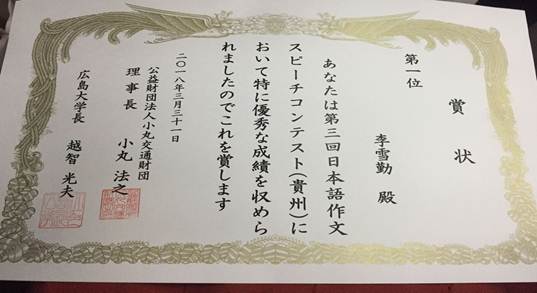 賞状
第一位
李雪勤 殿
あなたは第三回日本語作文
スピーチコンテスト(貴州)に
おいて特に優秀な成績を収めら
れましたのでこれを賞します
二〇一八年三月三十一日
公益財団法人小丸交通財団
理事長 小丸 法之
広島大学長 越智 光夫